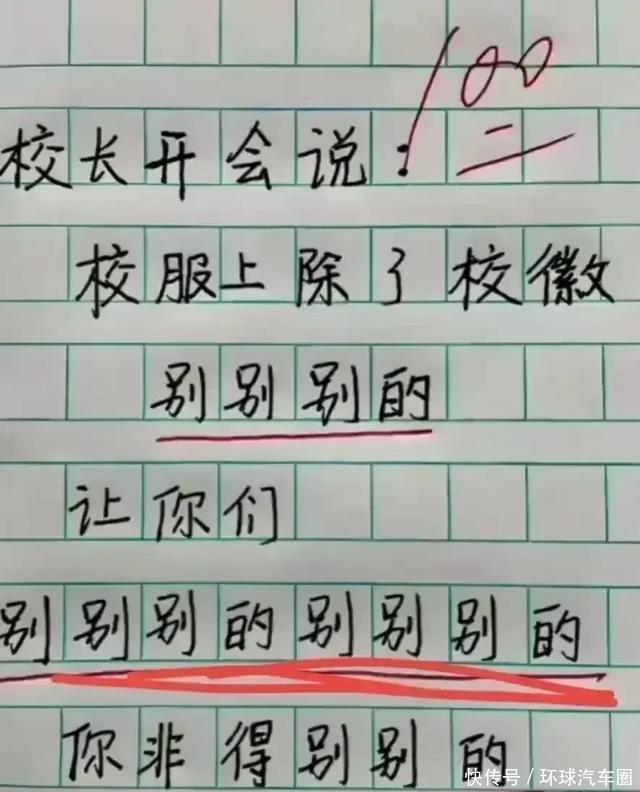 100
校长开会说:
校服上除了校徽
别别别的
让你们
别别别的别别别的
你非得别别的
快传号/环球汽车圈